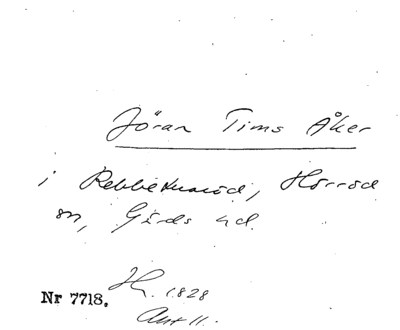 Jöran Tims Åker
i Rebbetuaröd, Hörröd
sn, Gärds hd.
Nr 7718. H. 1828
Akt 11.